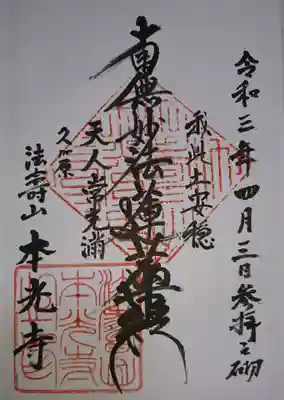 令和三年四月三日参拝之砌
我此土安穏
南無妙法蓮華経
天人常充満
久が原
法壽山
本光寺